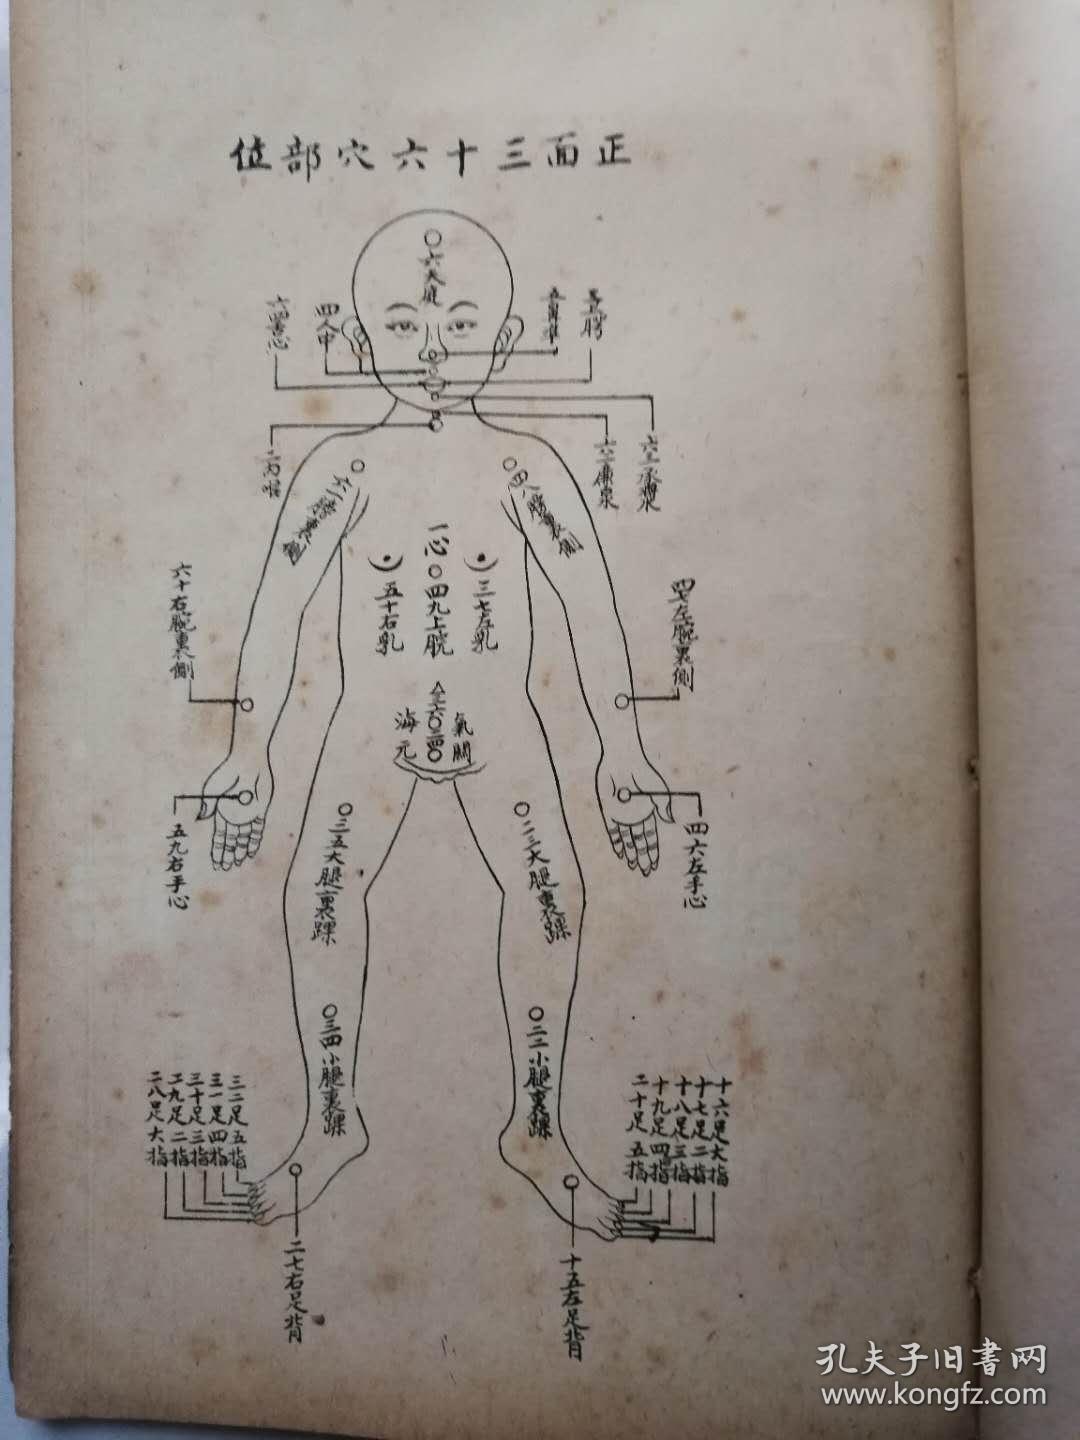 正面三十六穴部位
六天庭
四人中
五鼻準
二内喉
六一膀裏側
四八膀裏側
一心
四九上脘
五十右乳
三七左乳
六十右腕裏側
四七左腕裏側
氣海
關元
五九右手心
四六左手心
三五大腿裏踝
二三大腿裏踝
三四小腿裏踝
二二小腿裏踝
十六足大指
十七足二指
十八足三指
十九足四指
二十足五指
三二足五指
三一足四指
三十足三指
二九足二指
二八足大指
二七右足背
十五左足背
孔夫子旧書网
www.kongfz.com